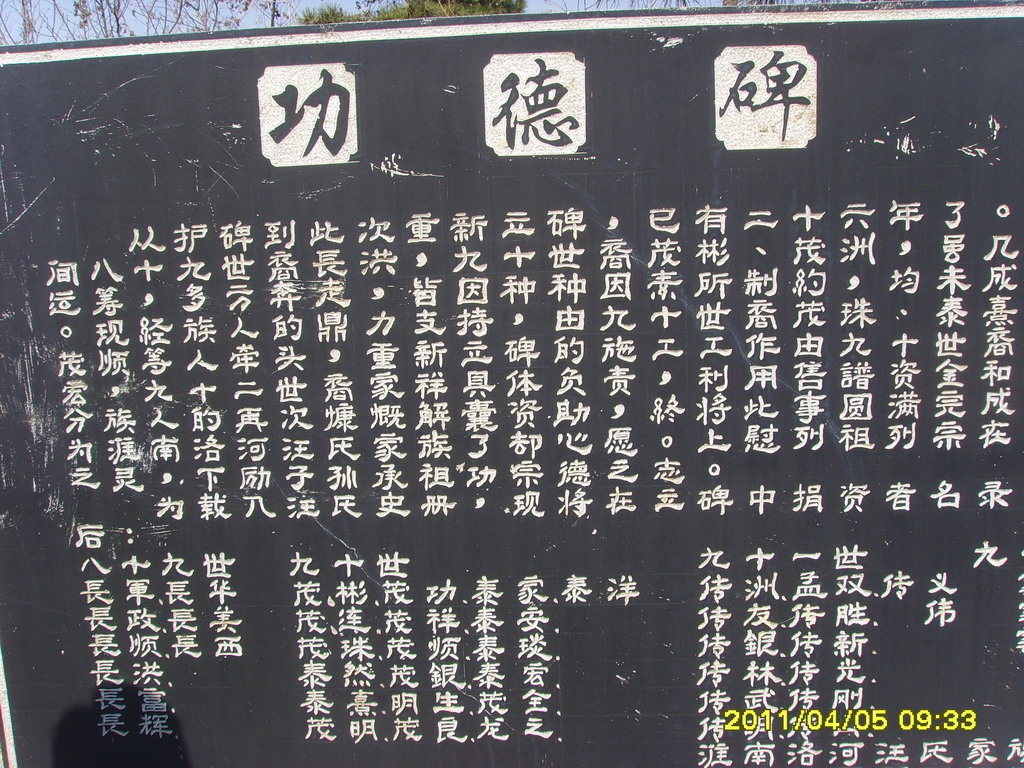 功德碑
从护碑到此次重新立碑，已有二十六年了。
间，八十九世裔長洪，九十世裔茂彬、茂洲，几
运筹，多方奔走，皆因种种因素所制約，均未成
。现经族人的鼎力支持，由九十世裔茂珠、泰熹
茂顺等人牵头，重新立碑的施工工作由九十世裔
宏族九十二世裔家祥具体负责，利用售譜资金和
分淮人的再次慷慨解囊资助，終将此事圆满完成
为南洛河汪氏家族了却心愿。上慰列祖列宗在
之灵，下励子孙承祖功宗德之志。
为载入汪氏史册，现将在立碑中捐资者名录
后：
八十九世 九十世 九十一世 九
長軍 長华 茂彬 茂功 泰家 泰洋 传洲 孟双 传义
長政 長美 茂连 茂祥 泰安 传友 传胜 伟
長顺 長西 茂珠 茂顺 泰琰 传銀 传新
長洪 泰然 茂銀 泰宏 传林 传光
長富 泰熹 明生 泰全 传武 传刚
長辉 茂明 茂良 龙之 传州
淮南洛河汪氏家族
2011/04/05 09:33